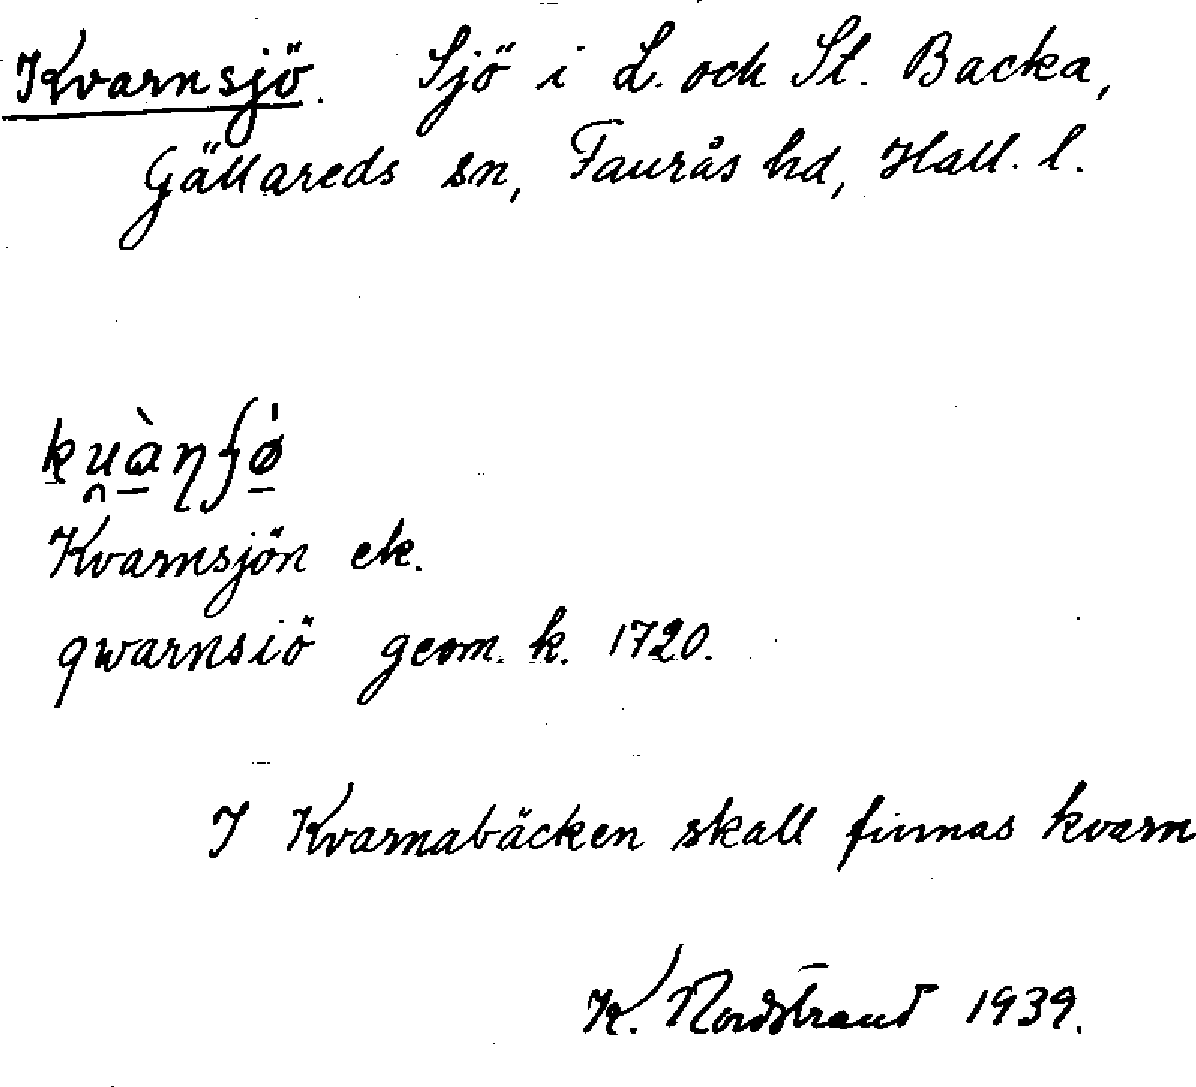 Kvarnsjö. Sjö i L. och St. Backa,
Gällareds sn, Faurås hd, Hall. l.
Kvarnsjön ek.
qwarnsiö geom. k. 1720.
I Kvarnabäcken skall finnas kvarn
K. Nordstrand 1939.